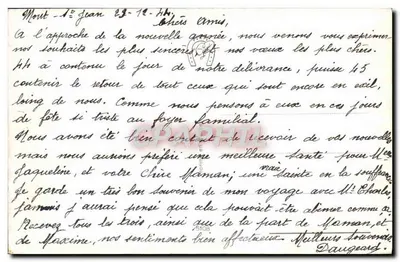 Mont-St Jean 29-12-44.
Chers Amis,
A l'approche de la nouvelle année, nous venons vous exprimer
nos souhaits les plus sincères et nos vœux les plus chers.
44 à contenu le jour de notre délivrance, puisse 45
contenir le retour de tout ceux qui sont encore en exil,
loing de nous. Comme nous pensons à eux en ces jours
de fête si triste au foyer familial.
Nous avons été bien content de recevoir de vos nouvelles
mais nous aurions préféré une meilleure santé pour
Jaqueline, et votre Chère Maman; une Sainte en la souffrance
mais
Je garde un très bon souvenir de mon voyage avec Mr Charles
jamais j'aurai pensé que cela pouvait être abimer comme
Recevez tous les trois, ainsi que de la part de Maman, et
de Maxime, nos sentiments bien affectueux. Meilleurs souvenirs
Daugeard